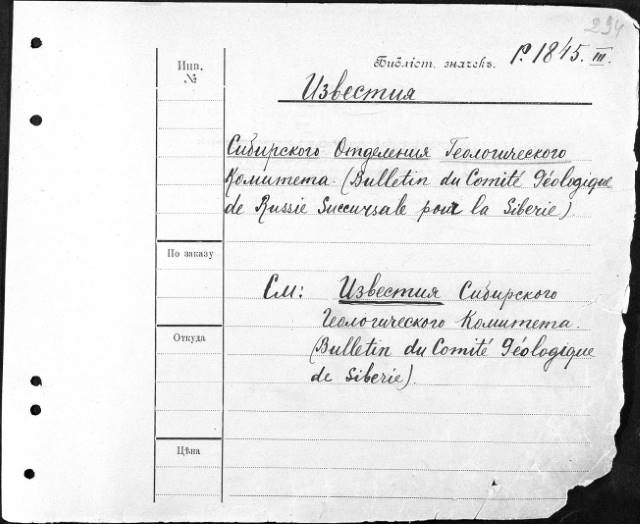 234
Инв.
№
Библіот. значекъ. Р. 1845. III.
Известия
Сибирского Отделения Геологического
Комитета. (Bulletin du Comité Géologique
de Russie Succursale pour la Siberie)
По заказу
См: Известия Сибирского
Геологического Комитета.
Откуда
(Bulletin du Comité Géologique
de Siberie).
Цѣна